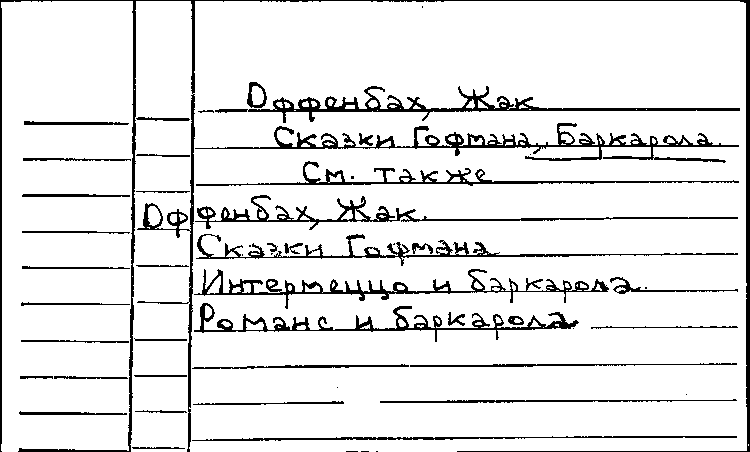 Оффенбах, Жак
Сказки Гофмана, Баркарола.
См. также
Оффенбах, Жак.
Сказки Гофмана
Интермеццо и баркарола.
Романс и баркарола